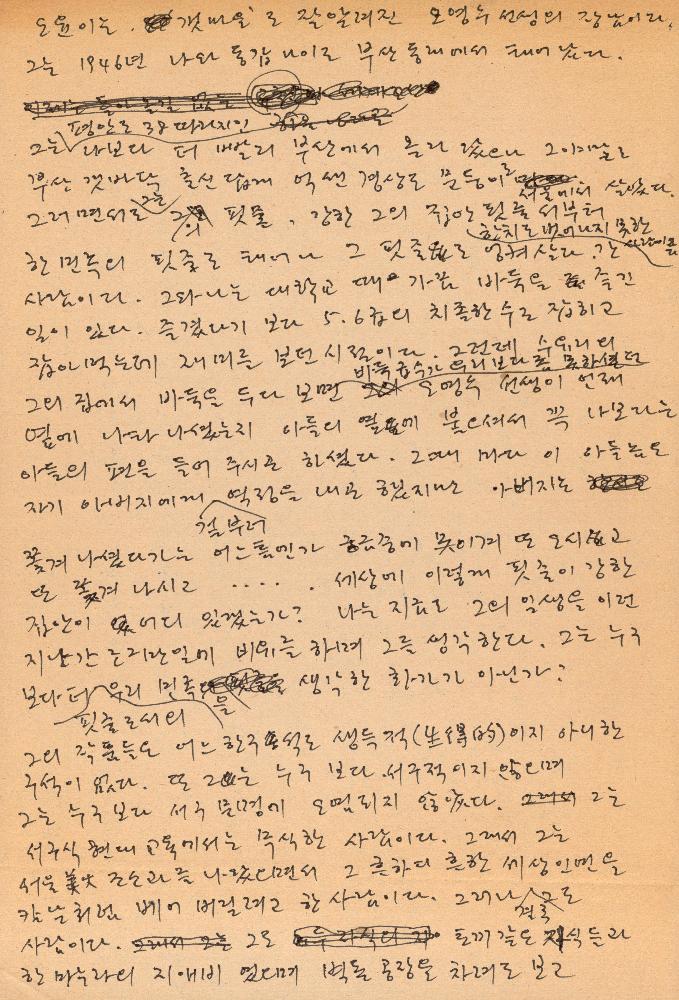 오윤이는, '갯마을'로 잘알려진 오영수 선생의 장남이다.
그는 1946년 나와 동갑 나이로 부산 동래에서 태어났다.
평안도 38 따라지인
그는 나보다 더 빨리 부산에서 올라 왔으나 그야말로
부산 갯바닥 출신 답게 억센 경상도 문둥이로 서울에서 살았다.
그러면서도 그는 그의 핏줄, 강한 그의 집안 핏줄서부터
한치도 벗어나지 못한
한 민족의 핏줄로 태어나 그 핏줄로 엉켜 살다 간 사람이름
사람이다. 그와나는 대학교 때 가끔 바둑을 즐긴
일이 있다. 즐겼다기 보다 5.6급의 치졸한 수로 잡히고
잡아먹는데 재미를 보던 시절이다. 그런데 수유리의
바둑급수가 우리보다 좀 못하셨던
그의 집에서 바둑을 두다 보면 오영수 선생이 언제
옆에 나와 나셨는지 아들의 열에 붙으셔서 꼭 나보다는
아들의 편을 들어 주시곤 하셨다. 그때 마다 이 아들놈은
자기 아버지에게 역정을 내곤 했지만 아버지는
쫓겨 나셨다가는 어느틈엔가 궁금증에 못이겨 또 오시고
또 쫓겨 나시고 ‥‥. 세상에 이렇게 핏줄이 강한
집안이 어디 있겠는가? 나는 지금도 그의 일생을 이런
지난간 는 일에 비위를 하며 그를 생각한다. 그는 누구
보다 더 우리 민족을 생각한 화가가 아닌가?
핏줄로서의
그의 작품들은 어느 한구석도 생득적(生得的)이지 아니한
구석이 없다. 또 그는 누구 보다 서구적이지 않으며
그는 누구보다 서구 문명에 오염되지 않았다. 그래서 그는
서구식 현대 교육에서는 무식한 사람이다. 그래서 그는
서울 美大 조소과를 나왔으면서 그 흔하디 흔한 세상인연을
칼날처럼 베어 버릴려고 한 사람이다. 그러나 결국 그도
사람이다. 그도 토끼 같은 자식들과
한 마누라의 지애비 였으며 벽돌 공장을 차려도 보고